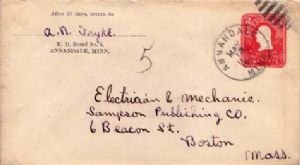 After 10 days, return to
R. D. Route No. 4,
ANNANDALE, MINN.
5
ANNANDALE
Electrician & Mechanic.
Sampson Publishing Co.
6 Beacon St.
Boston
Mass.